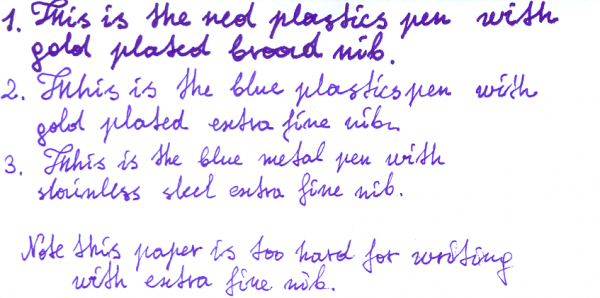 1. This is the red plastics pen with
gold plated broad nib.
2. This is the blue plastics pen with
gold plated extra fine nib.
3. This is the blue metal pen with
stainless steel extra fine nib.
Note this paper is too hard for writing
with extra fine nib.